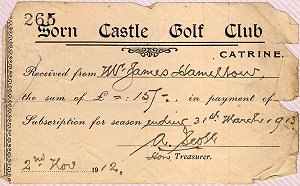 265
Sorn Castle Golf Club
CATRINE.
Received from Mr James Hamilton
the sum of £ =: 15/-. in payment of
Subscription for season ending 31st March 1913
A. Scott
Hon. Treasurer.
2nd Nov 1912.